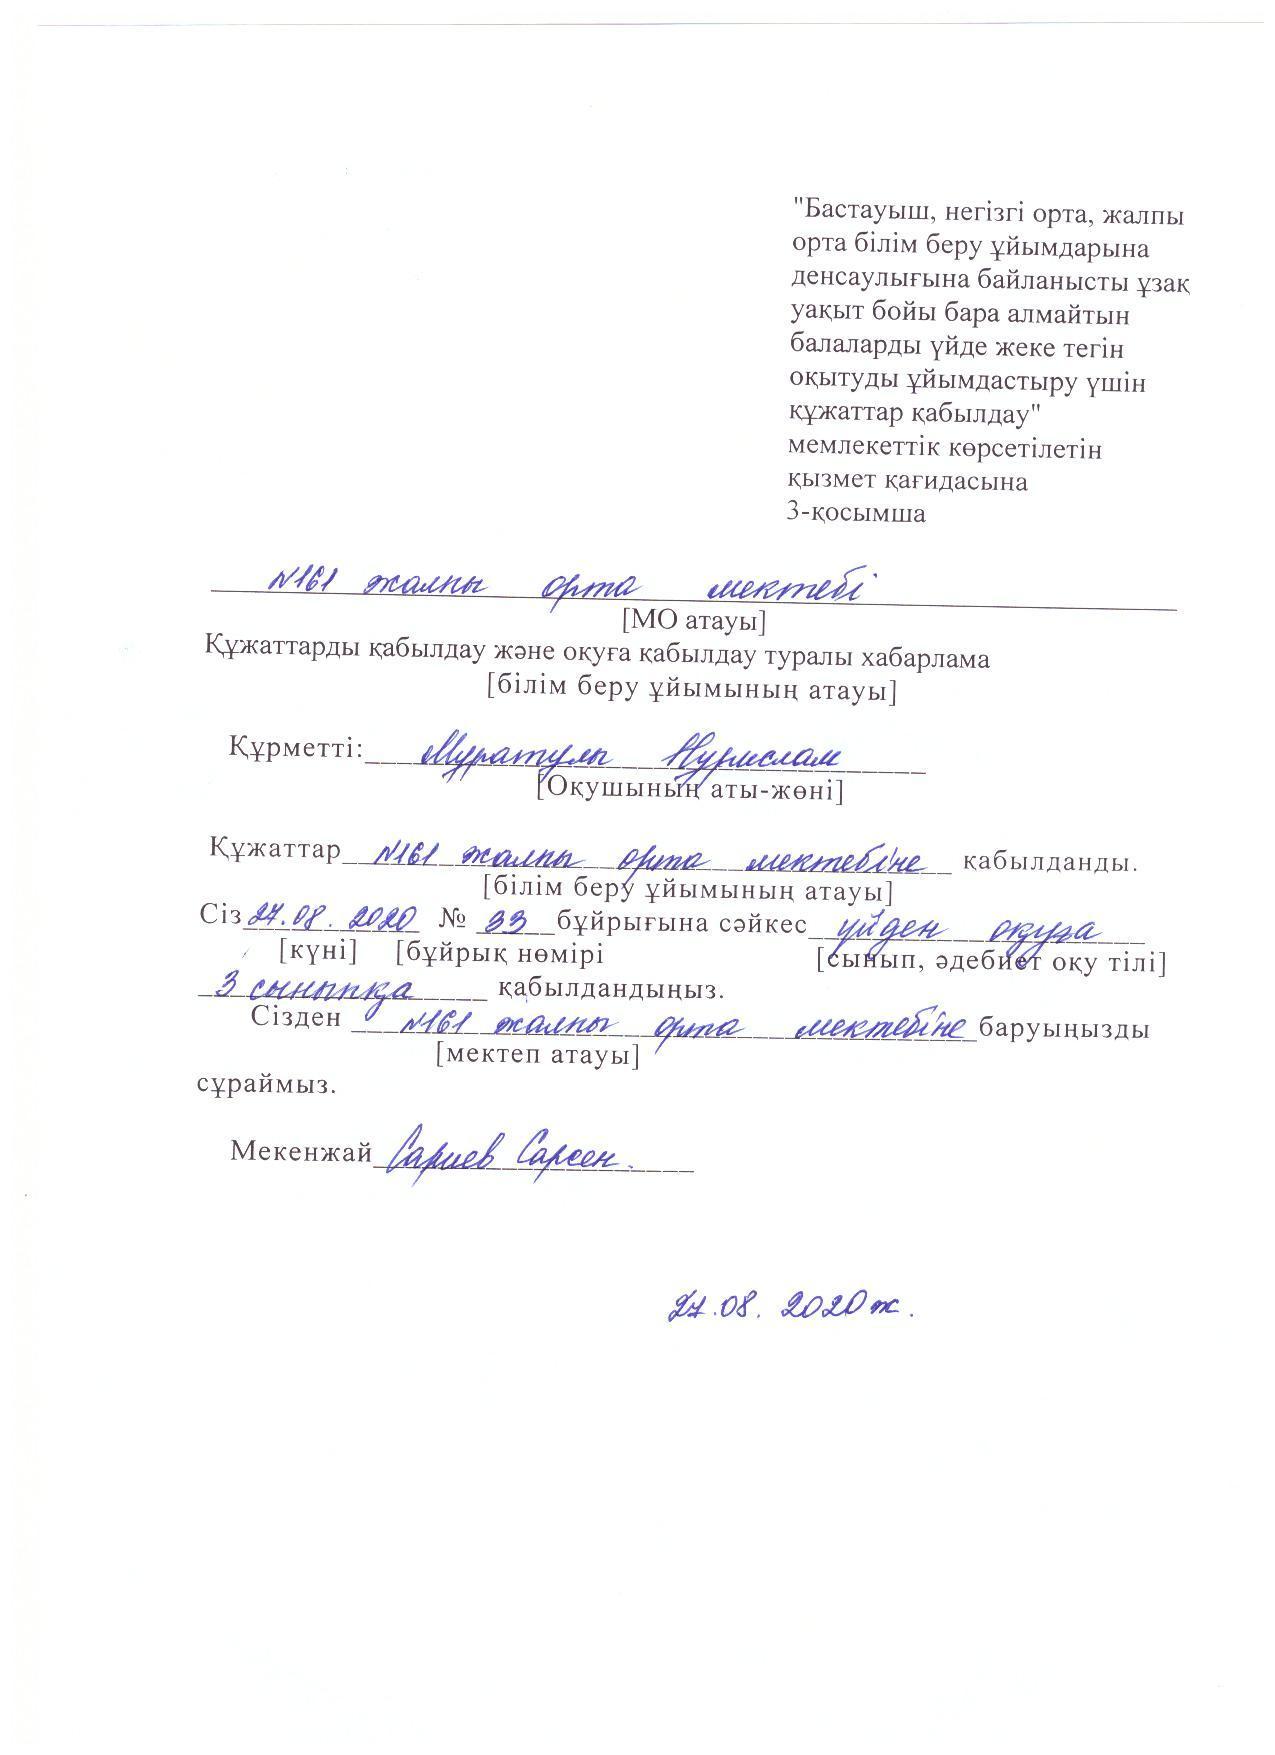 "Бастауыш, негізгі орта, жалпы
орта білім беру ұйымдарына
денсаулығына байланысты ұзақ
уақыт бойы бара алмайтын
балаларды үйде жеке тегін
оқытуды ұйымдастыру үшін
құжаттар қабылдау"
мемлекеттік көрсетілетін
қызмет қағидасына
3-қосымша
№161 жалпы орта мектебі
[МО атауы]
Құжаттарды қабылдау және оқуға қабылдау туралы хабарлама
[білім беру ұйымының атауы]
Құрметті: Мұратұлы Нұрислам
[Оқушының аты-жөні]
Құжаттар №161 жалпы орта мектебіне қабылданды.
[білім беру ұйымының атауы]
Сіз 27.08.2020 № 33 бұйрығына сәйкес үйден оқуға
[күні] [бұйрық нөмірі [сынып, әдебиет оқу тілі]
3 сыныпқа қабылдандыңыз.
Сізден №161 жалпы орта мектебіне баруыңызды
[мектеп атауы]
сұраймыз.
Мекенжай Сариев Сарсен.
27.08.2020ж.